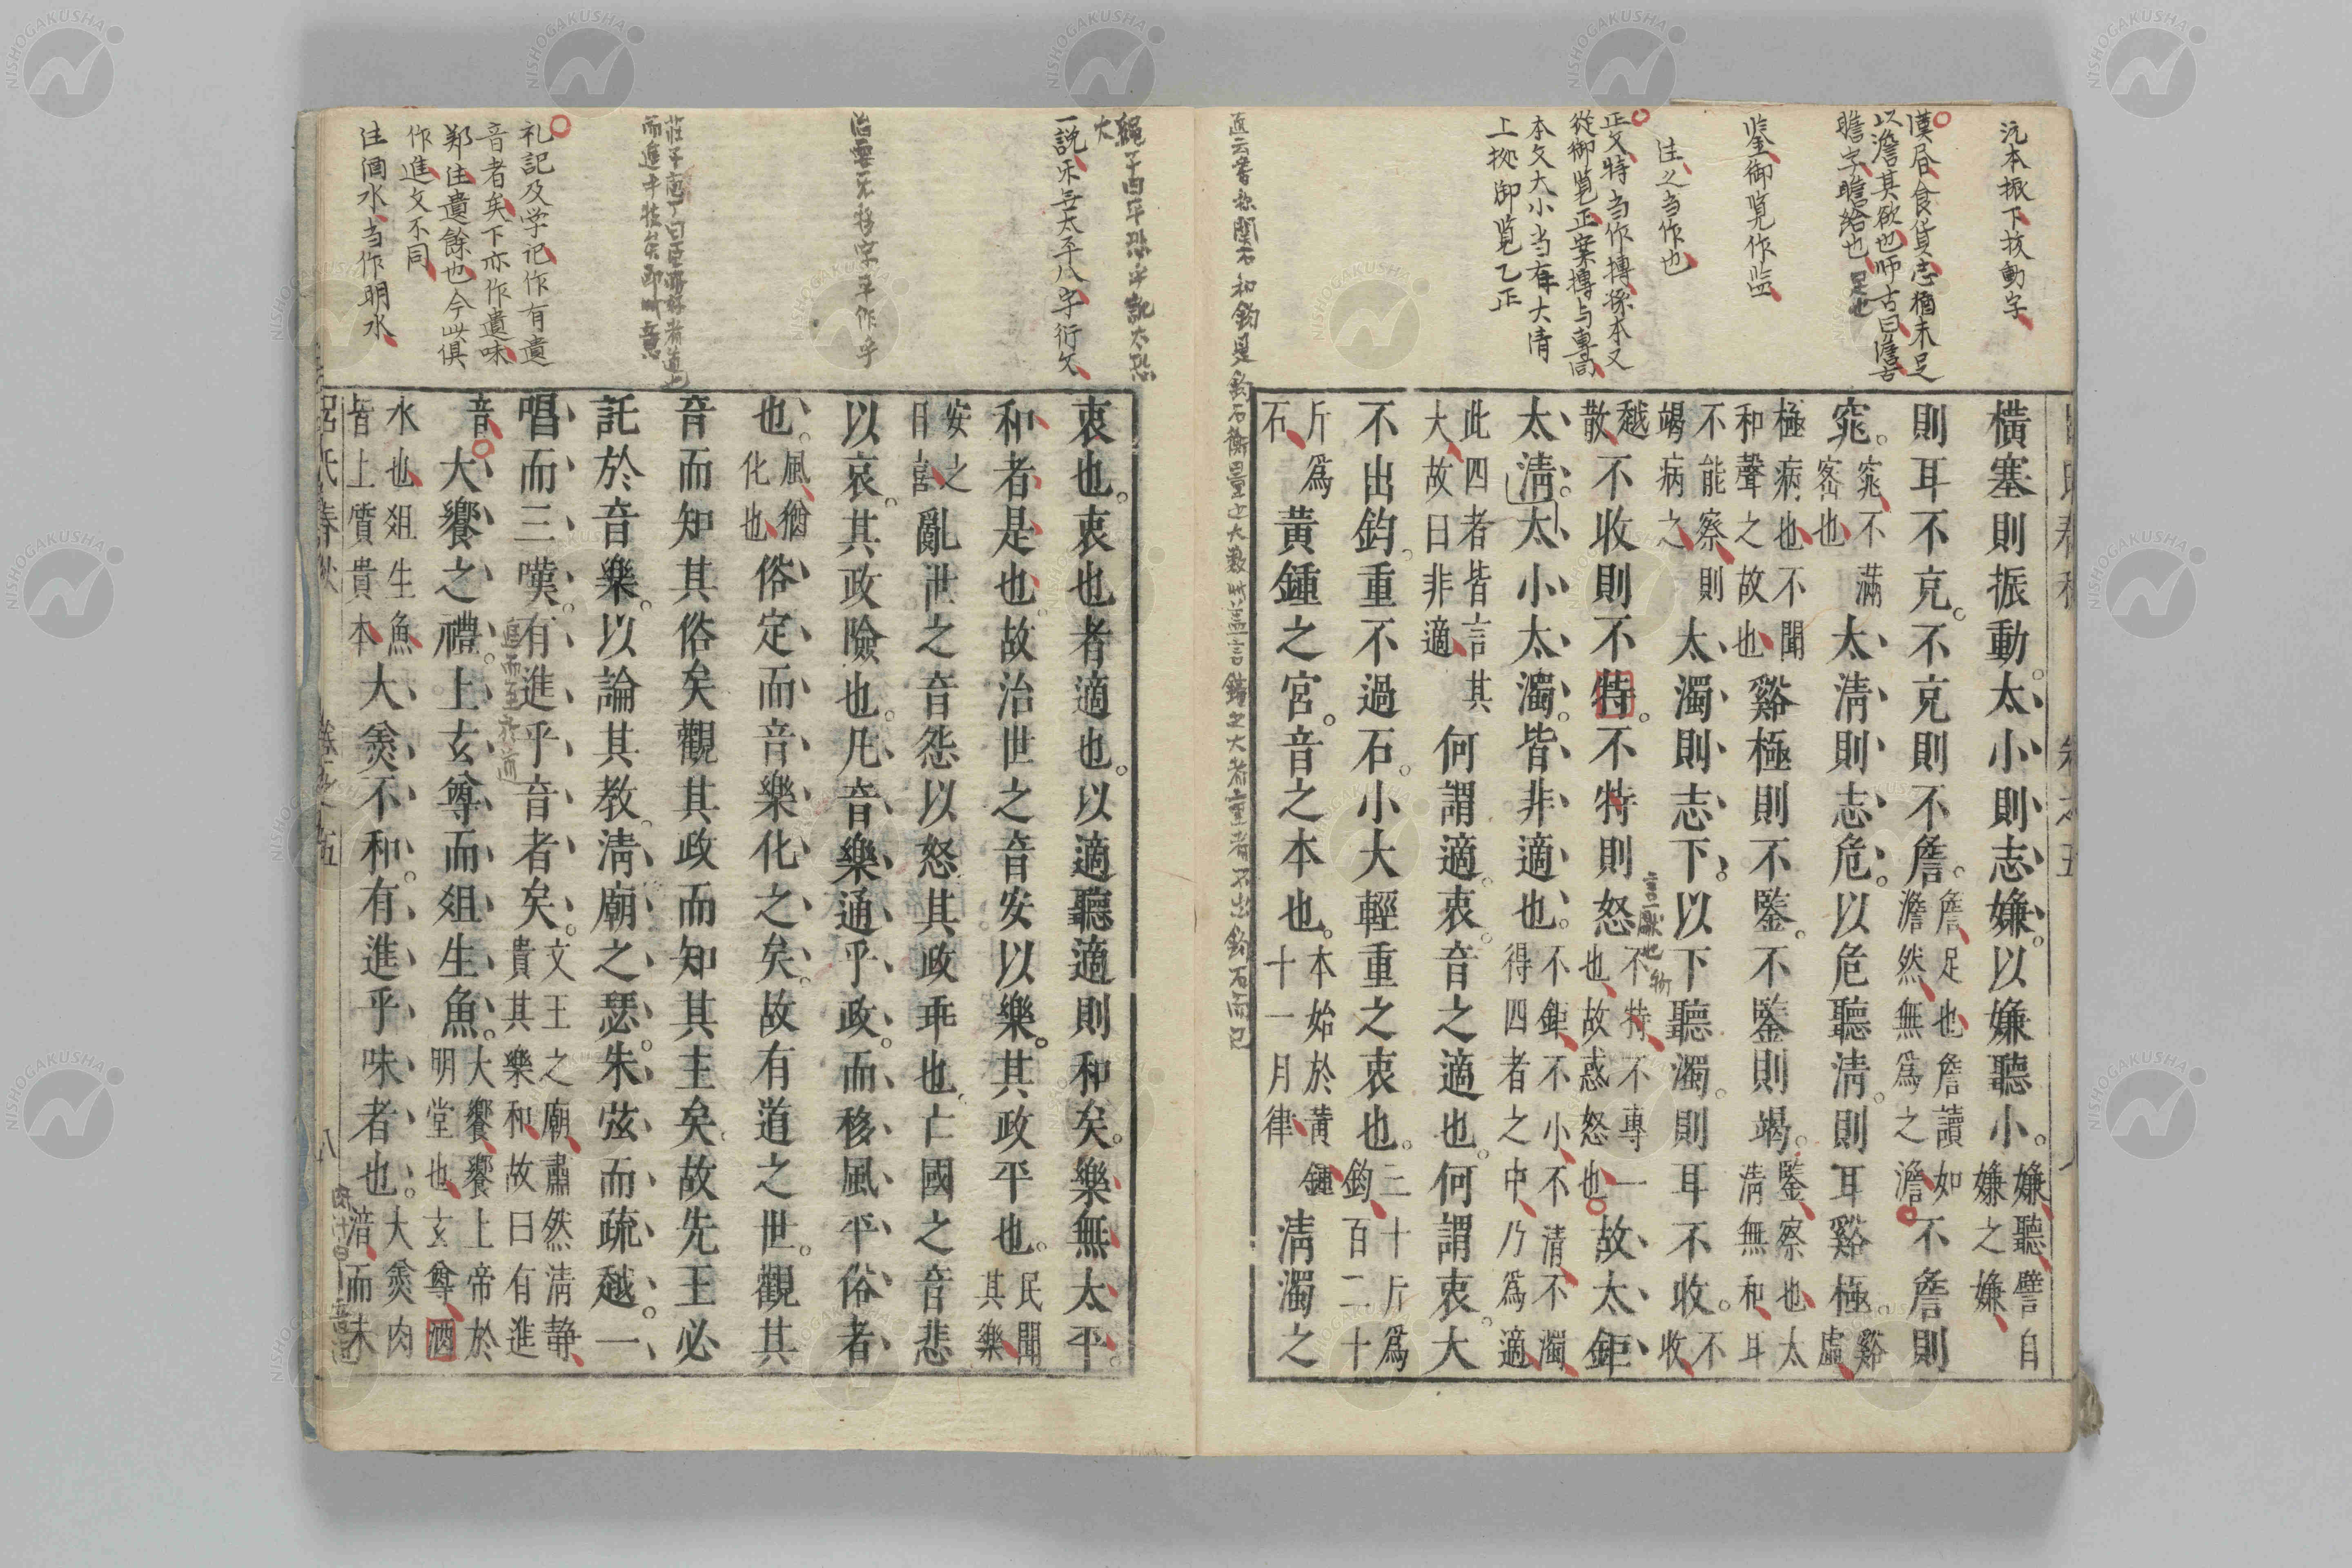 汎本振下核動字
漢昏食貨志猶未足
以澹其欲也師古曰澹古
贍字贍給也 足也
鍳御覧作监
注之当作也
正文特当作摶涿本又
從御覧正案摶与專同
本文大小当有大清
上拠御覧乙正
橫塞則振動。太小則志嫌。以嫌聽小。嫌聽譬自嫌之嫌
則耳不克。不克則不詹。詹足也詹讀如澹然無爲之澹不詹則
窕。窕不滿密也太淸則志危。以危聽淸。則耳谿極谿虛
極病也不聞和聲之故也谿極則不鑒。不鑒則竭。鑒察也太淸無和耳
不能察則竭病之太濁則志下。以下聽濁。則耳不收。不收
越散不收則不特。不特則怒不特不專一也故惑怒也故太鉅
太淸。太小太濁。皆非適也。不鉅不小不淸不濁得四者之中乃爲適
此四者皆言其大故曰非適何謂適。衷。音之適也。何謂衷。大
不出鈞。重不過石。小大輕重之衷也。三十斤爲鈞百二十
斤爲石黃鍾之宮。音之本也。本始於黃鍾十一月律淸濁之
一説禾吾太平八字衍文
礼記及学记作有遺
音者矣下亦作遺味
郑注遺餘也今此俱
作進文不同
注酒水当作明水
衷也。衷也者適也。以適聽適則和矣。樂無太平。
和者是也。故治世之音安以樂。其政平也。民聞其樂
安之曰喜亂世之音怨以怒其政乖也。亡國之音悲
以哀。其政險也。凡音樂通乎政。而移風平俗者
也。風猶化也俗定而音樂化之矣。故有道之世。觀其
音而知其俗矣觀其政而知其主矣。故先王必
託於音樂。以論其教。淸廟之瑟。朱弦而疏越。一
唱而三嘆。有進乎音者矣。文王之廟肅然淸靜貴其樂和故曰有進
音大饗之禮。上玄尊而俎生魚。大饗饗上帝於明堂也玄尊酒
水也俎生魚皆上質貴本大羹不和。有進乎味者也。大羹肉湆而未
呂氏春秋 卷之五 八